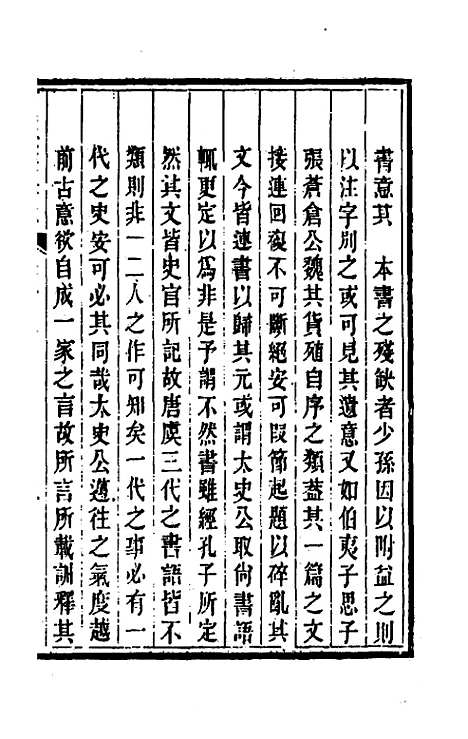 書意其　本書之殘缺者少孫因以附益之則
以注字別之或可見其遺意又如伯夷子思子
張蒼倉公魏其貨殖自序之類葢其一篇之文
接連回複不可斷絕安可叚節起題以碎亂其
文今皆連書以歸其元或謂太史公取尚書語
輒更定以爲非是予謂不然書雖經孔子所定
然其文皆史官所記故唐虞三代之書語皆不
類則非一二人之作可知矣一代之事必有一
代之史安可必其同哉太史公邁往之氣度越
前古意欲自成一家之言故所言所載訓釋其